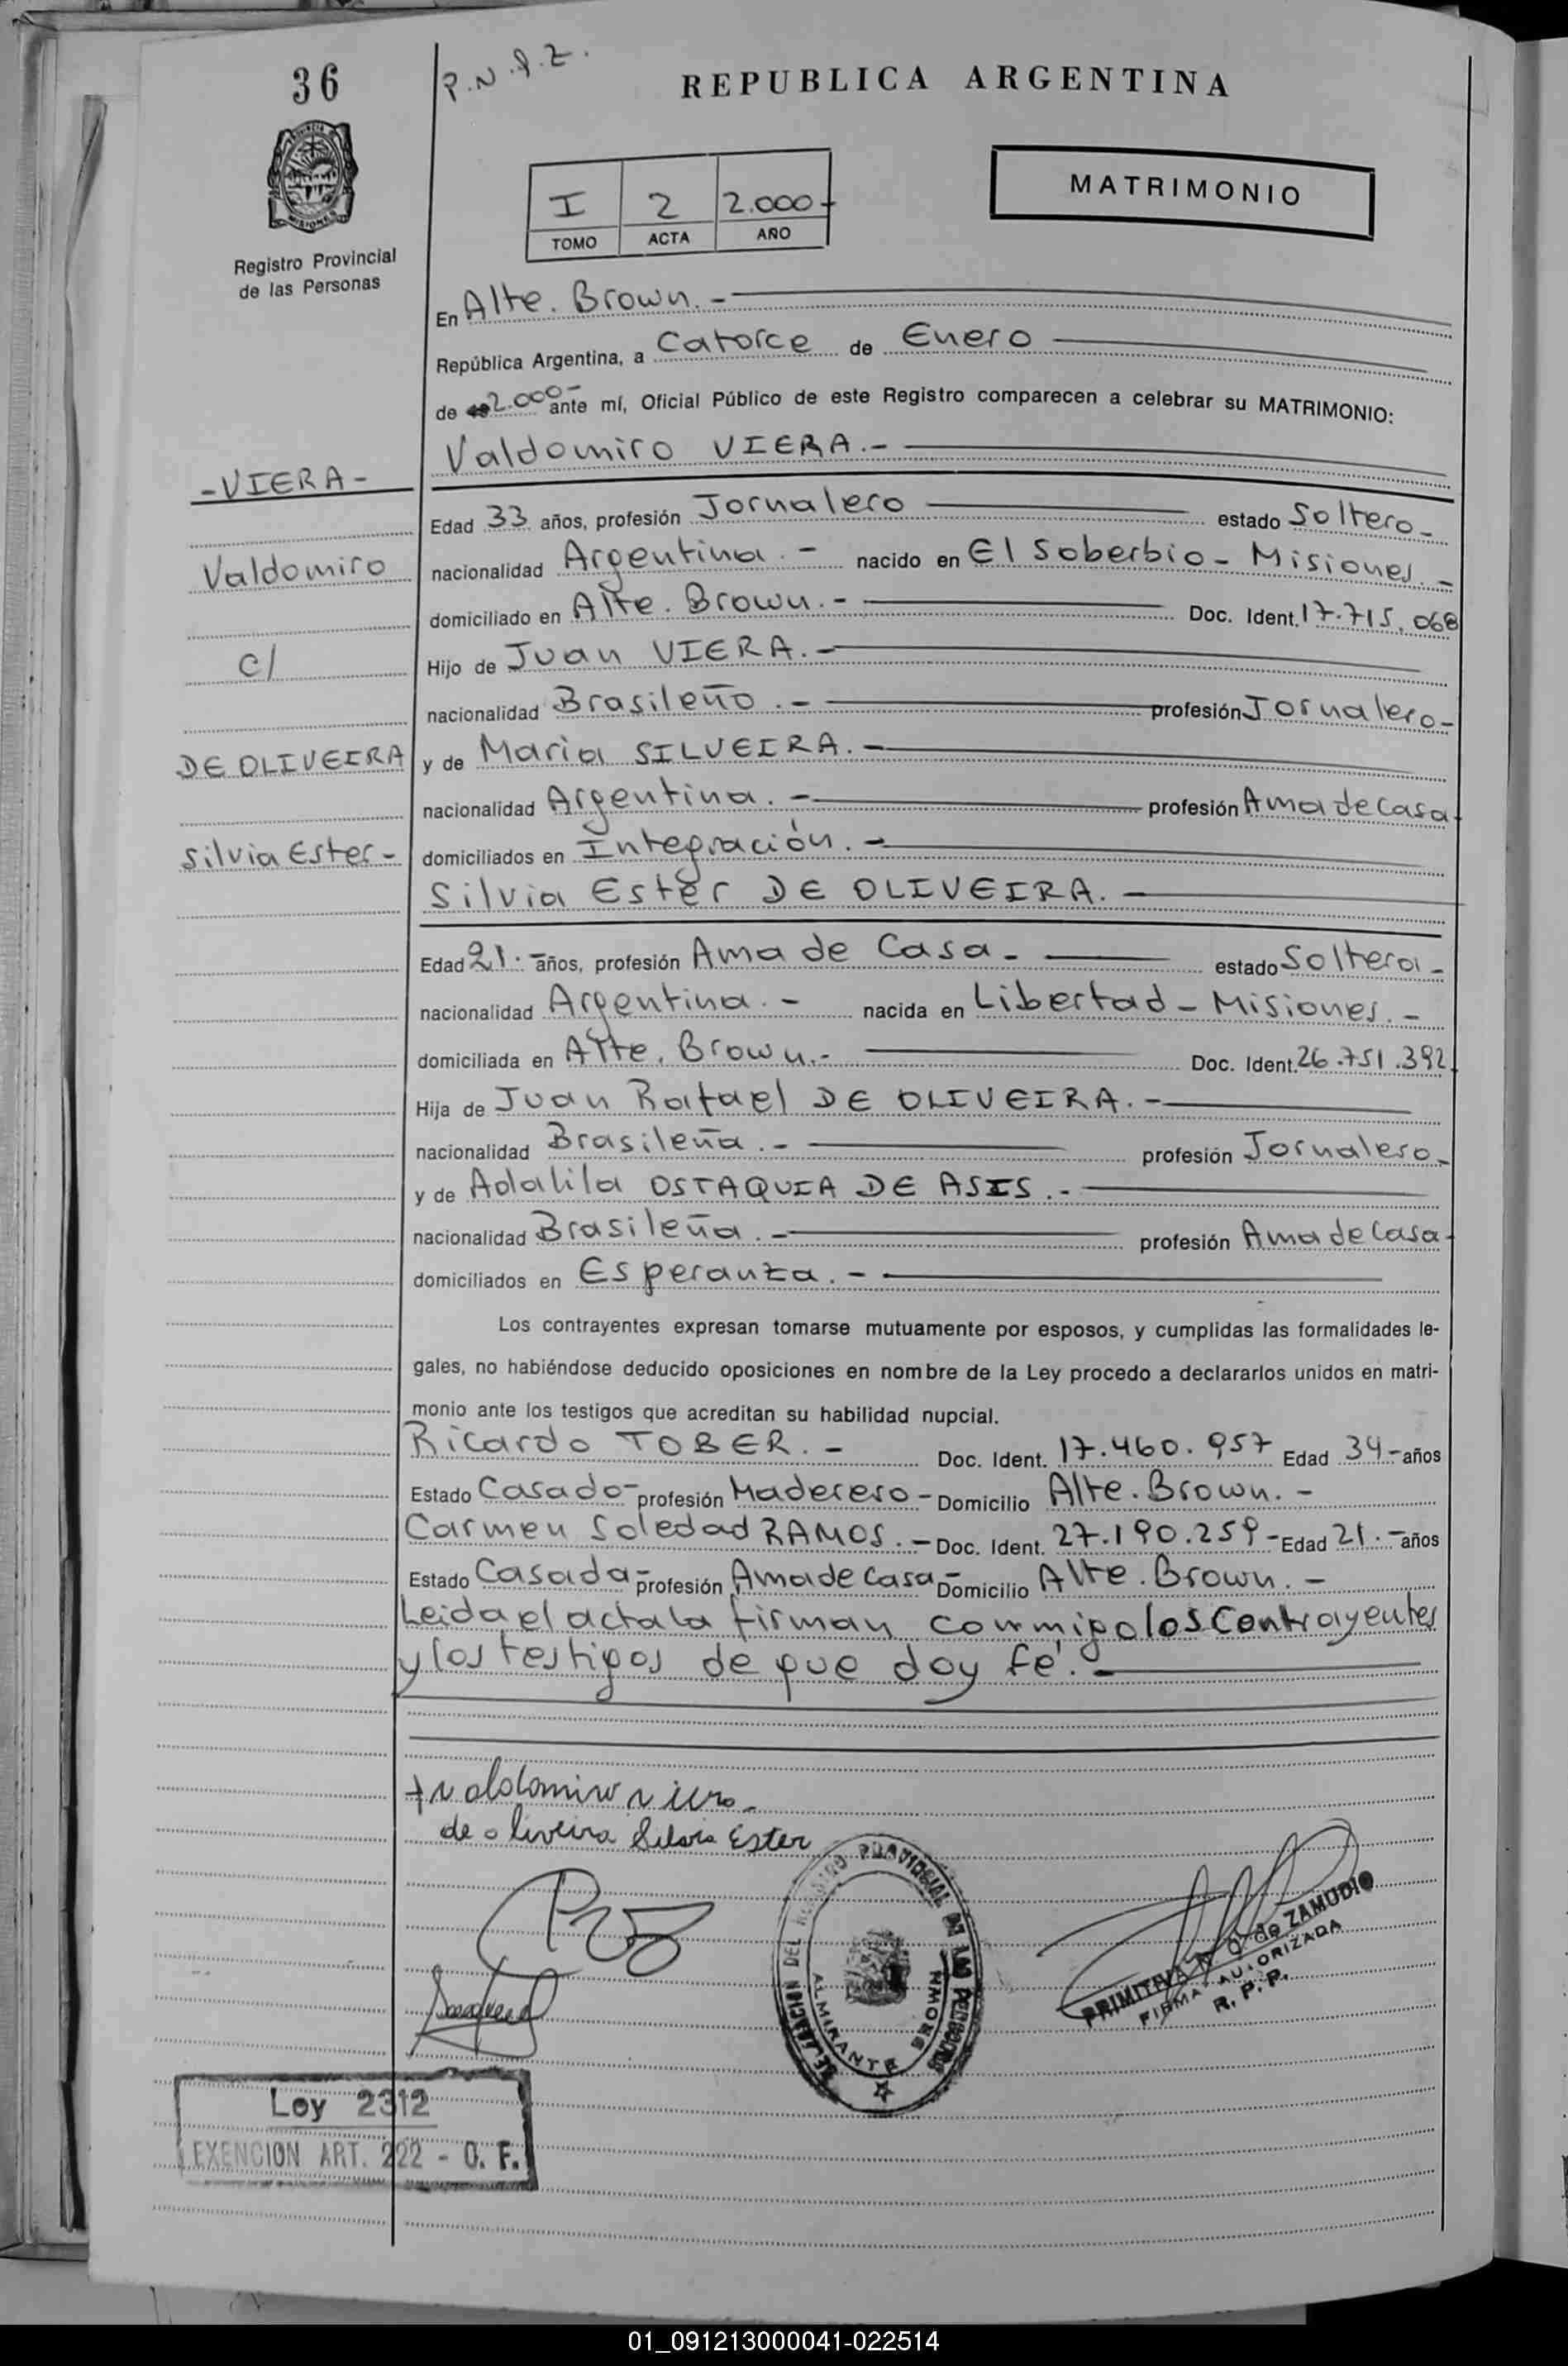 36
P.N.
REPUBLICA ARGENTINA
I 2 2.000-
TOMO ACTA AÑO
MATRIMONIO
Registro Provincial
de las Personas
En Alte. Brown.-
República Argentina, a Catorce de Enero
de 2.000- ante mí, Oficial Público de este Registro comparecen a celebrar su MATRIMONIO:
Valdomiro VIERA.-
-VIERA-
Edad 33 años, profesión Jornalero estado Soltero-
Valdomiro
nacionalidad Argentina.- nacido en El Soberbio- Misiones.-
domiciliado en Alte. Brown.- Doc. Ident. 17.715.068
c/
Hijo de Juan VIERA.-
nacionalidad Brasileño.- profesión Jornalero-
DE OLIVEIRA
y de Maria SILVEIRA.-
nacionalidad Argentina.- profesión Ama de casa-
Silvia Ester-
domiciliados en Integración.-
Silvia Ester DE OLIVEIRA.-
Edad 21.- años, profesión Ama de Casa- estado Soltera-
nacionalidad Argentina.- nacida en Libertad- Misiones.-
domiciliada en Alte. Brown.- Doc. Ident. 26.751.392
Hija de Juan Rafael DE OLIVEIRA.-
nacionalidad Brasileña.- profesión Jornalero-
y de Adalila OSTAQUIA DE ASIS.-
nacionalidad Brasileña.- profesión Ama de Casa-
domiciliados en Esperanza.-
Los contrayentes expresan tomarse mutuamente por esposos, y cumplidas las formalidades le-
gales, no habiéndose deducido oposiciones en nombre de la Ley procedo a declararlos unidos en matri-
monio ante los testigos que acreditan su habilidad nupcial.
Ricardo TOBER.- Doc. Ident. 17.460.957 Edad 34- años
Estado Casado- profesión Maderero- Domicilio Alte. Brown.-
Carmen Soledad RAMOS.- Doc. Ident. 27.190.259- Edad 21.- años
Estado Casada- profesión Ama de casa- Domicilio Alte. Brown.-
Leida el acta la firman conmigo los Contrayentes
y los testigos de que doy fé.-
de oliveira Silvia Ester
DELEGACION DEL REGISTRO PROVINCIAL DE LAS PERSONAS
ALMIRANTE BROWN
PRIMITIVA N. Q. de ZAMUDIO
FIRMA AUTORIZADA
R. P. P.
Ley 2312
EXENCION ART. 222 - C. F.
01_091213000041-022514